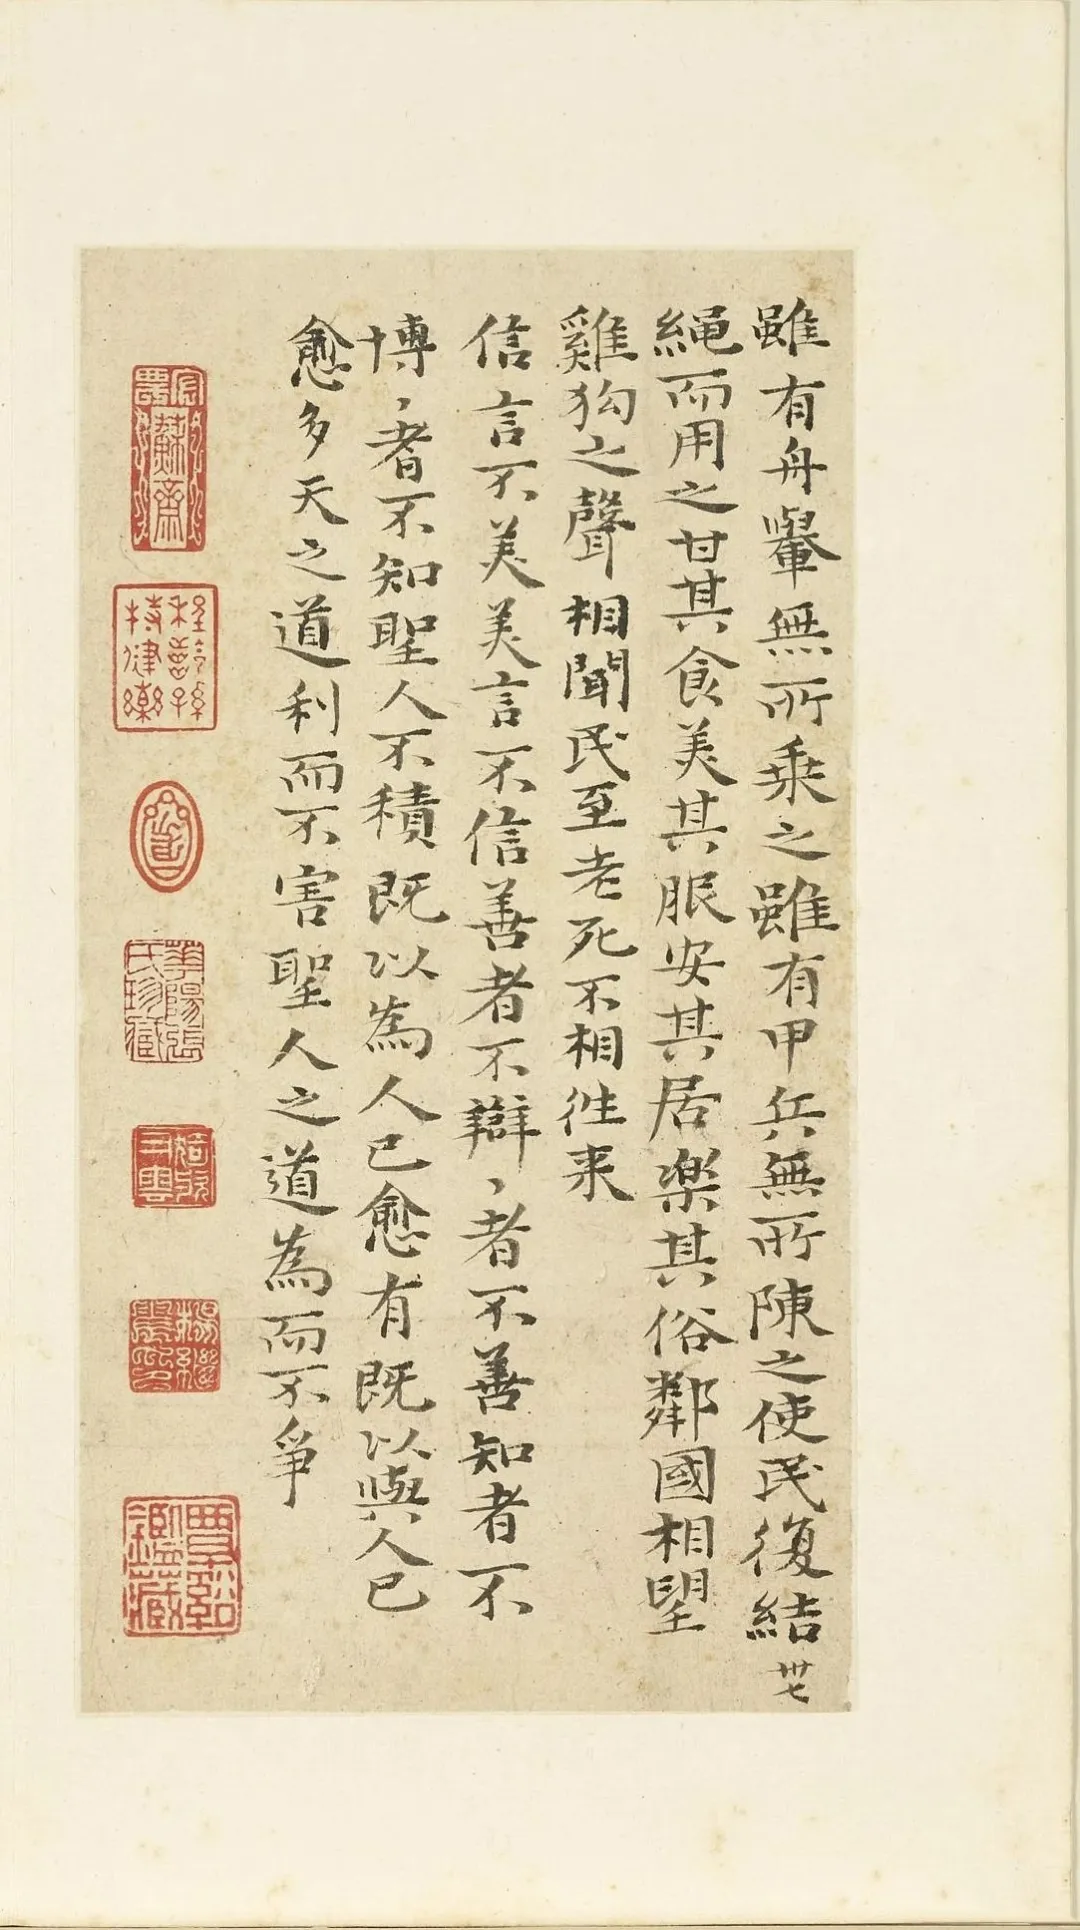 雖有舟轝無所乗之雖有甲兵無所陳之使民復結
卅七
繩而用之甘其食美其服安其居楽其俗鄰國相望
雞狗之聲相聞民至老死不相徃来
信言不美美言不信善者不辯、者不善知者不
博、者不知聖人不積既以為人已愈有既以與人已
愈多天之道利而不害聖人之道為而不爭
蘇齋
華陽張氏珍藏